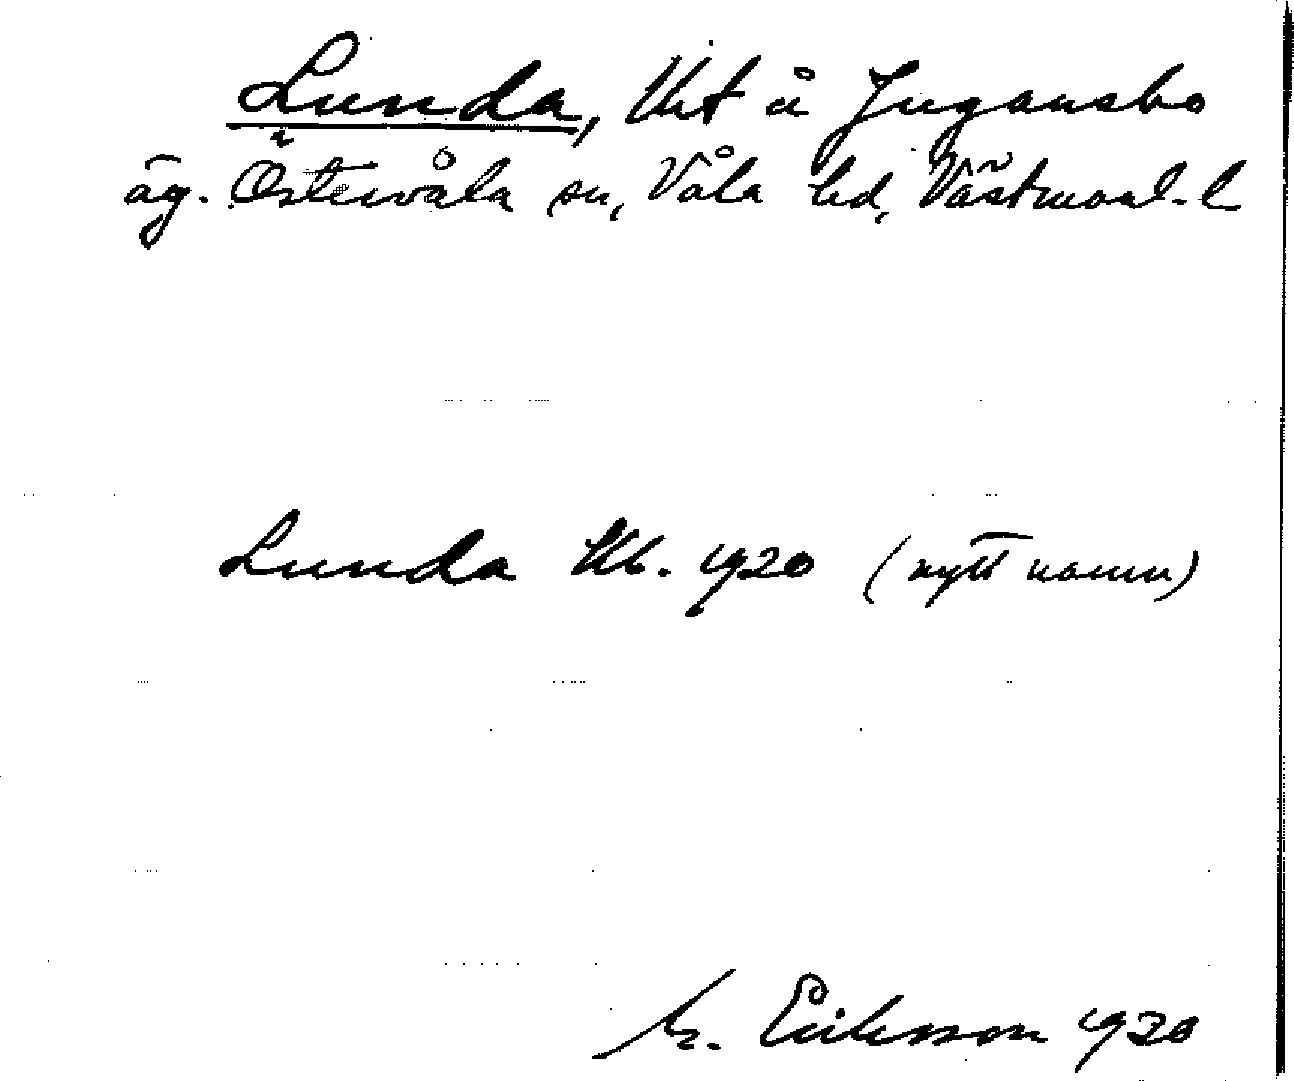 Lunda, Uht å Jugansbo
äg. Östervåla sn, Våla hd, Västmanl. l
Lunda Kb. 1920 (nytt namn)
M. Eriksson 1930